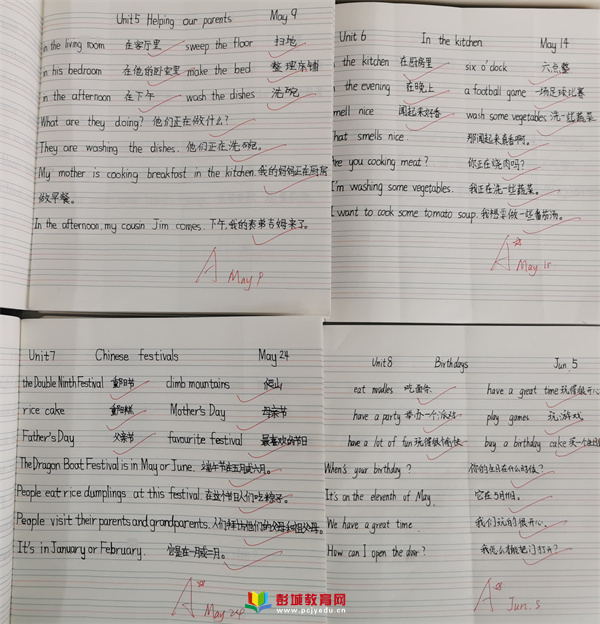 Unit5 Helping our parents May 9
in the living room 在客厅里 sweep the floor 扫地
in his bedroom 在他的卧室里 make the bed 整理床铺
in the afternoon 在下午 wash the dishes 洗碗
What are they doing? 他们正在做什么?
They are washing the dishes. 他们正在洗碗。
My mother is cooking breakfast in the kitchen. 我的妈妈正在厨房
做早餐。
In the afternoon, my cousin Jim comes. 下午,我的表弟吉姆来了。
A May 9
Unit 6 In the kitchen May 14
n the kitchen 在厨房里 six o'clock 六点整
n the evening 在晚上 a football game 一场足球比赛
mell nice 闻起来好香 wash some vegetables 洗一些蔬菜
hat smells nice. 那闻起来真香啊。
Are you cooking meat? 你正在烧肉吗?
I'm washing some vegetables. 我正在洗一些蔬菜。
I want to cook some tomato soup. 我想要做一些番茄汤。
A May 15
Unit7 Chinese festivals May 24
the Double Ninth Festival 重阳节 climb mountains 爬山
rice cake 重阳糕 Mother's Day 母亲节
Father's Day 父亲节 favourite festival 最喜欢的节日
The Dragon Boat Festival is in May or June. 端午节在五月或六月。
People eat rice dumplings at this festival. 在这个节日人们吃粽子。
People visit their parents and grandparents. 人们拜访他们的父母和祖父母。
It's in January or February. 它是在一月或二月。
A May 24
Unit8 Birthdays Jun. 5
eat noodles 吃面条 have a great time 玩得很开心
have a party 举办一个派对 play games 玩游戏
have a lot of fun 玩得很愉快 buy a birthday cake 买一个生日
When's your birthday? 你的生日在什么时候?
It's on the eleventh of May. 它在5月11日。
We have a great time. 我们玩的很开心。
How can I open the door? 我怎么才能把门打开?
A Jun. 5
彭城教育网
www.pcjyedu.cn